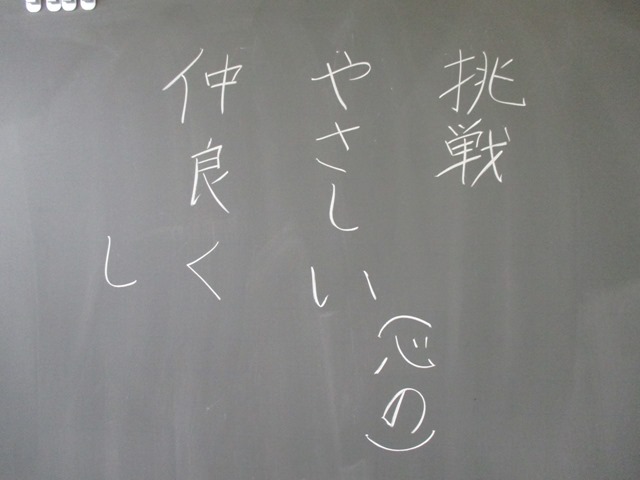 挑戦
(心の)
やさしい
仲良く
し